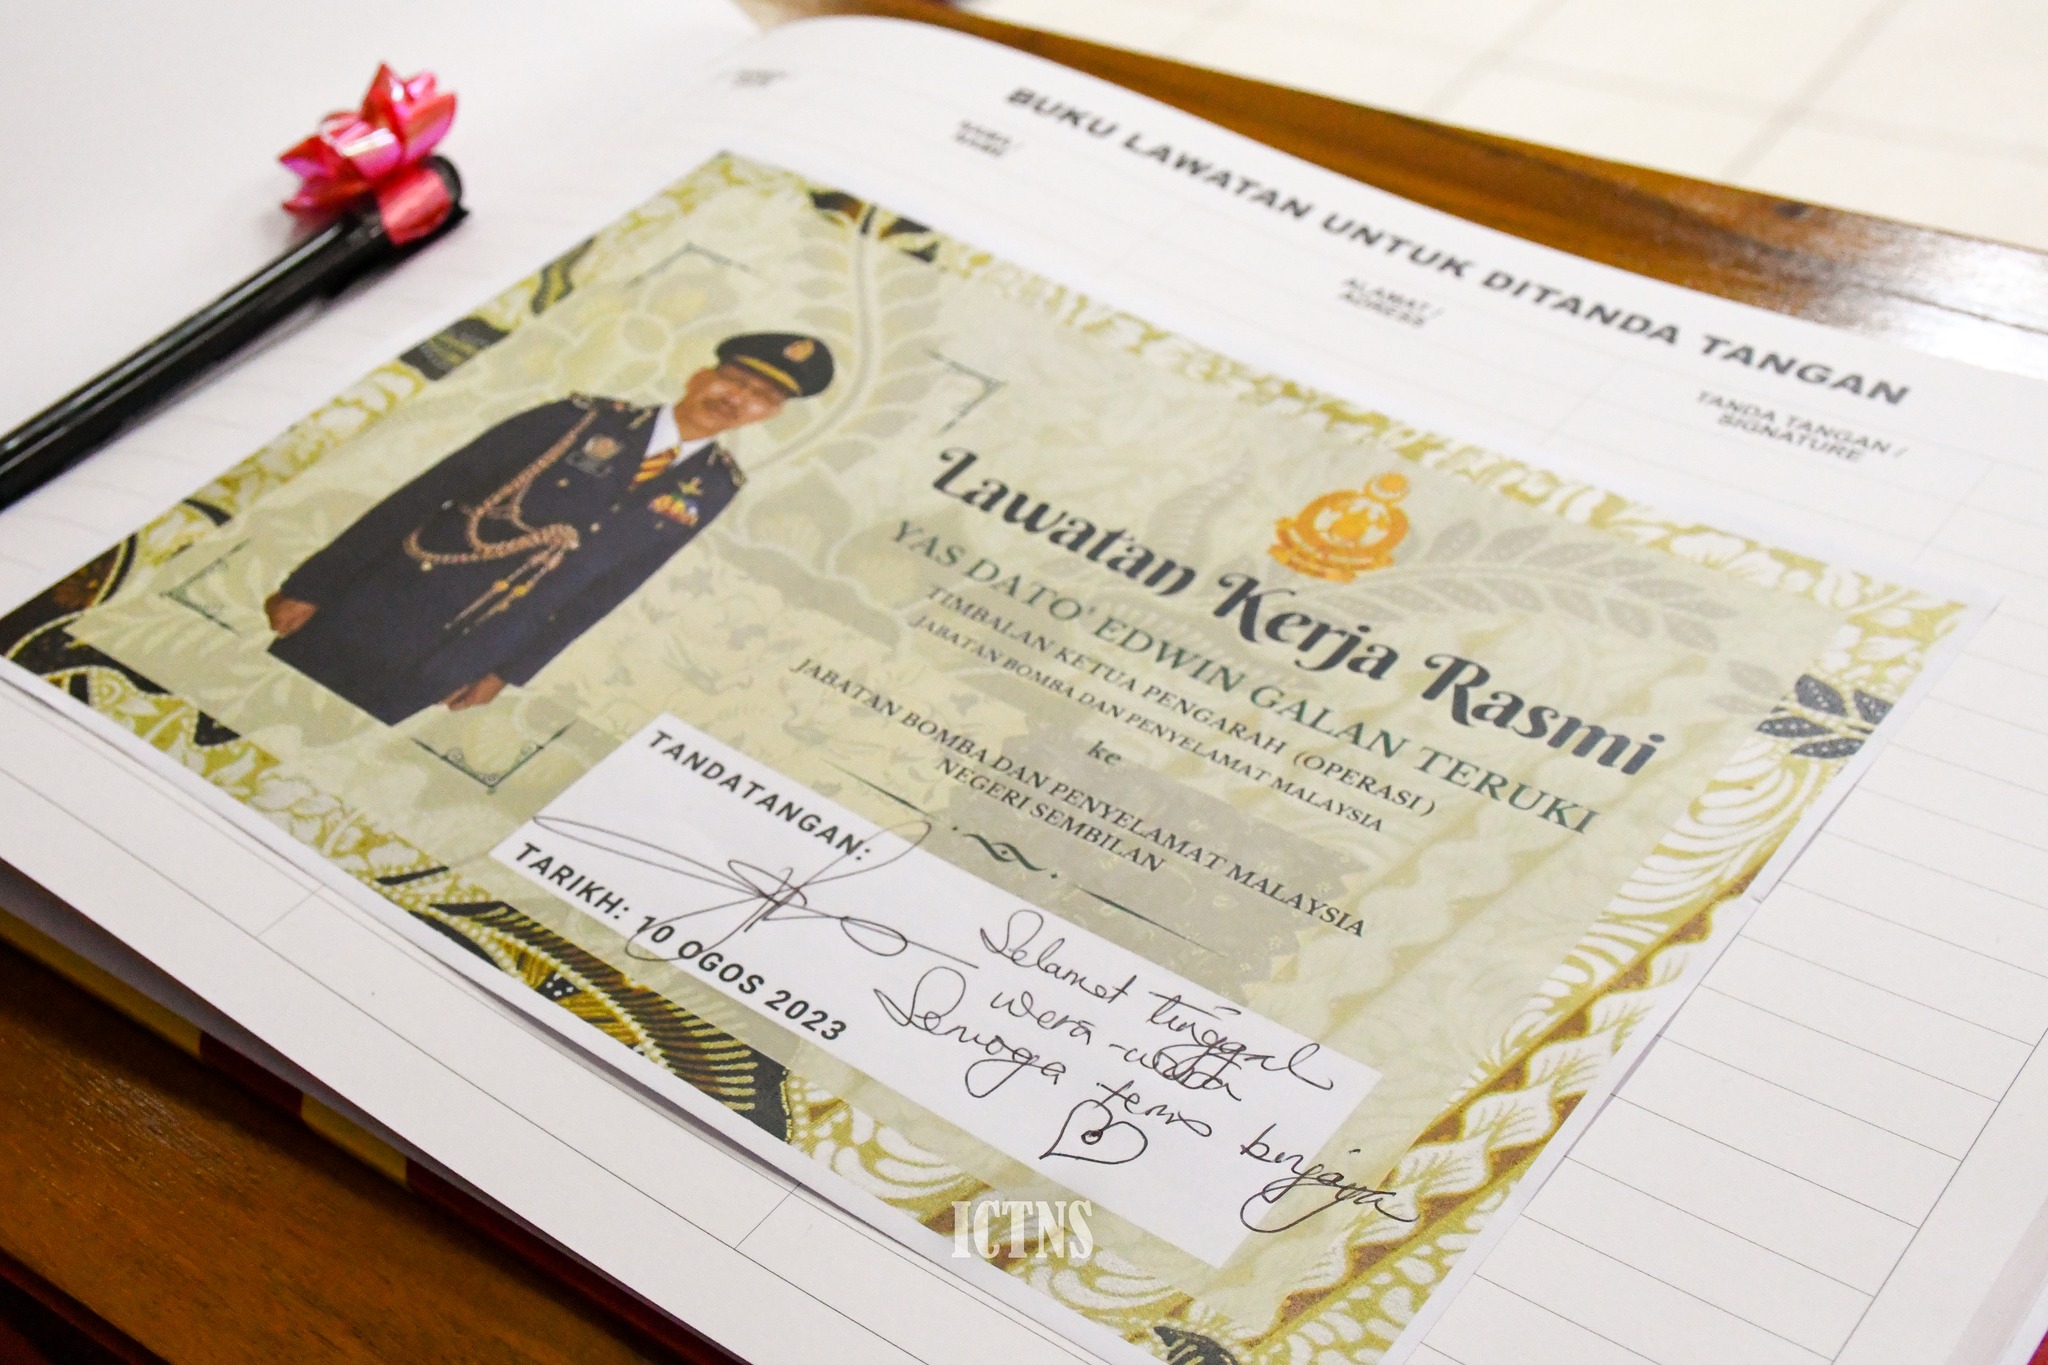 BUKU LAWATAN UNTUK DITANDA TANGAN
NAMA /
NAME
ALAMAT /
ADRESS
TANDA TANGAN /
SIGNATURE
Lawatan Kerja Rasmi
YAS DATO' EDWIN GALAN TERUKI
TIMBALAN KETUA PENGARAH (OPERASI)
JABATAN BOMBA DAN PENYELAMAT MALAYSIA
ke
JABATAN BOMBA DAN PENYELAMAT MALAYSIA
NEGERI SEMBILAN
TANDATANGAN:
TARIKH: 10 OGOS 2023
Selamat tinggal
wera-wera
Semoga terus berjaya
ICTNS